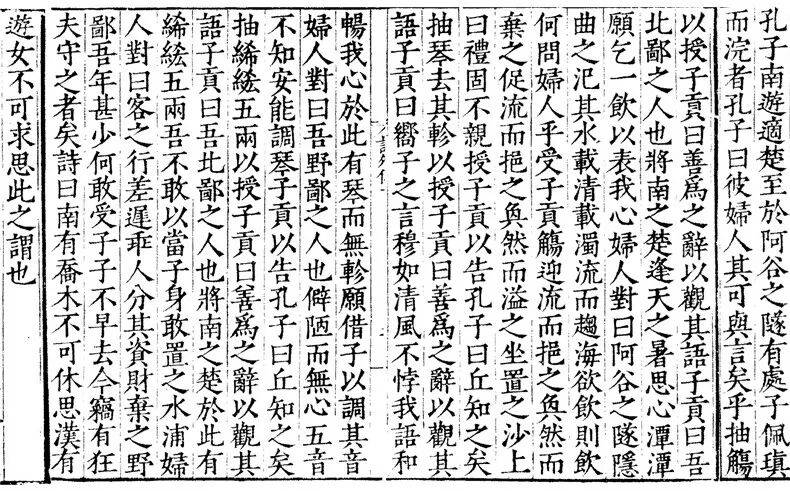 孔子南遊適楚至於阿谷之隧有處子佩瑱
而浣者孔子曰彼婦人其可與言矣乎抽觴
以授子貢曰善爲之辭以觀其語子貢曰吾
北鄙之人也將南之楚逢天之暑思心潭潭
願乞一飲以表我心婦人對曰阿谷之隧隱
曲之汜其水載清載濁流而趨海欲飲則飲
何問婦人乎受子貢觴迎流而挹之奐然而
棄之促流而挹之奐然而溢之坐置之沙上
曰禮固不親授子貢以告孔子曰丘知之矣
抽琴去其軫以授子貢曰善爲之辭以觀其
語子貢曰嚮子之言穆如清風不悖我語和
暢我心於此有琴而無軫願借子以調其音
婦人對曰吾野鄙之人也僻陋而無心五音
不知安能調琴子貢以告孔子曰丘知之矣
抽絺綌五兩以授子貢曰善爲之辭以觀其
語子貢曰吾北鄙之人也將南之楚於此有
絺綌五兩吾不敢以當子身敢置之水浦婦
人對曰客之行差遲乖人分其資財棄之野
鄙吾年甚少何敢受子子不早去今竊有狂
夫守之者矣詩曰南有喬木不可休思漢有
遊女不可求思此之謂也